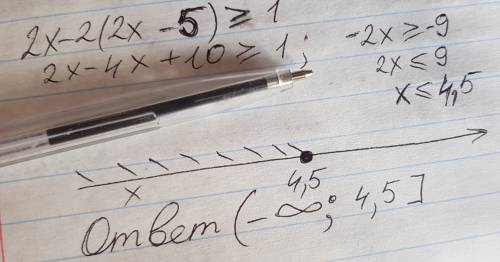 2x-2(2x-5)≥1
2x-4x+10≥1;
-2x≥-9
2x≤9
x≤4,5
x
4,5
Ответ (-∞; 4,5]